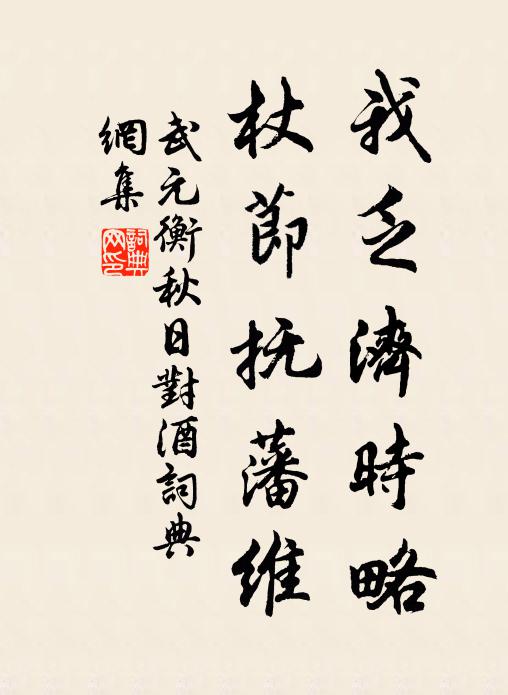 我乏濟時略
杖節抚藩维
武元衡秋日對酒詞典
網集
詞典
网印